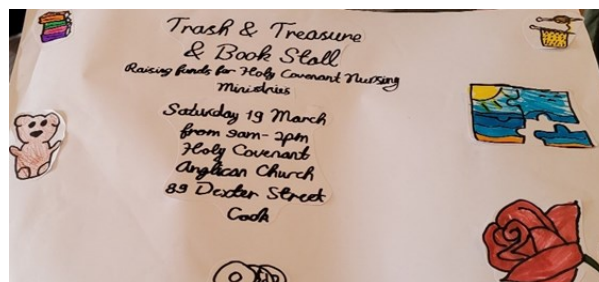 Trash & Treasure
& Book Stall
Raising funds for Holy Covenant Nursing
Ministries
Saturday 19 March
from 9am-2pm
Holy Covenant
Anglican Church
89 Dexter Street
Cook